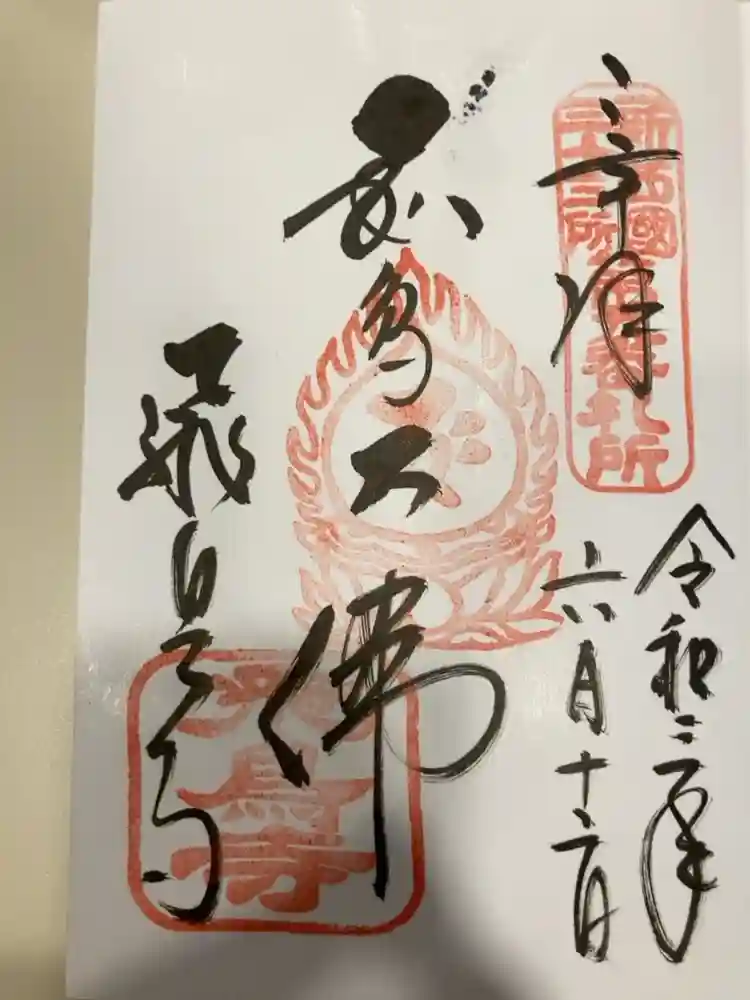 奉拝
新西國
三十三所
第九番札所
令和三年
六月十二日
飛鳥大佛
飛鳥寺
飛鳥寺